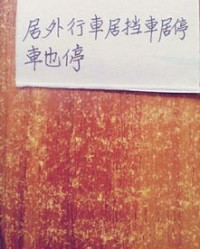 居外行車居挡車居停
車也停